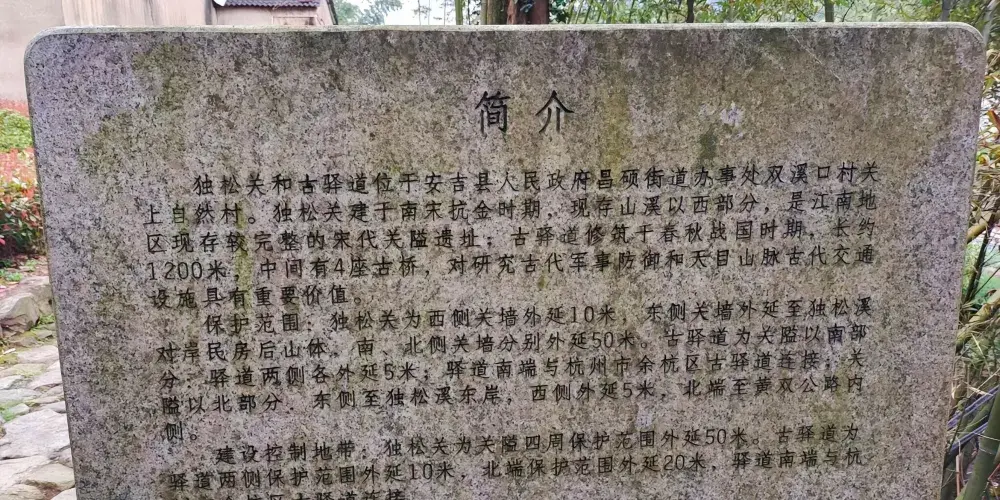 简介
独松关和古驿道位于安吉县人民政府昌硕街道办事处双溪口村关
上自然村。独松关建于南宋抗金时期，现存山溪以西部分，是江南地
区现存较完整的宋代关隘遗址；古驿道修筑于春秋战国时期，长约
1200米，中间有4座古桥，对研究古代军事防御和天目山脉古代交通
设施具有重要价值。
保护范围：独松关为西侧关墙外延10米，东侧关墙外延至独松溪
对岸民房后山体，南、北侧关墙分别外延50米。古驿道为关隘以南部
分：驿道两侧各外延5米；驿道南端与杭州市余杭区古驿道连接；关
隘以北部分：东侧至独松溪东岸，西侧外延5米，北端至黄双公路内
侧。
建设控制地带：独松关为关隘四周保护范围外延50米。古驿道为
驿道两侧保护范围外延10米，北端保护范围外延20米，驿道南端与杭
区古驿道连接